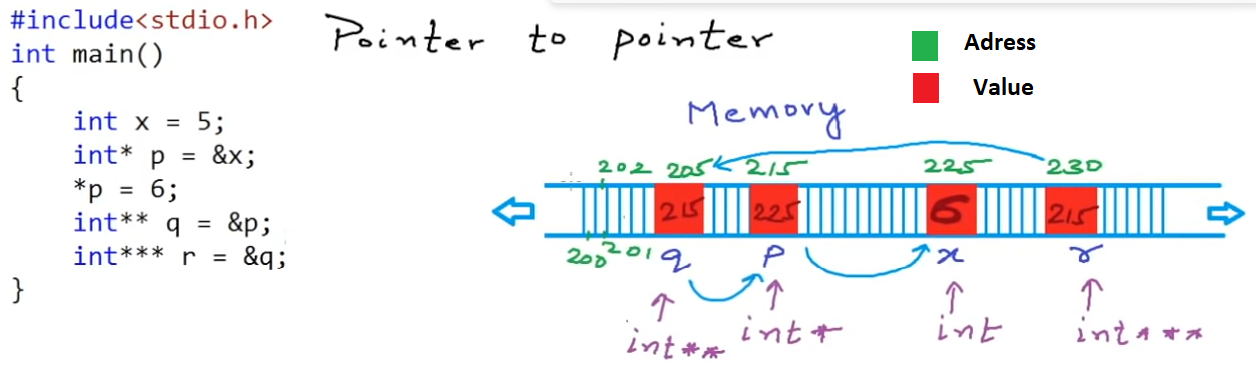 #include<stdio.h>
int main()
{
int x = 5;
int* p = &x;
*p = 6;
int** q = &p;
int*** r = &q;
}
Pointer to pointer
Adress
Value
Memory
202 205 215 225 230
215 225 6 215
200 201 q p x r
int** int* int int***